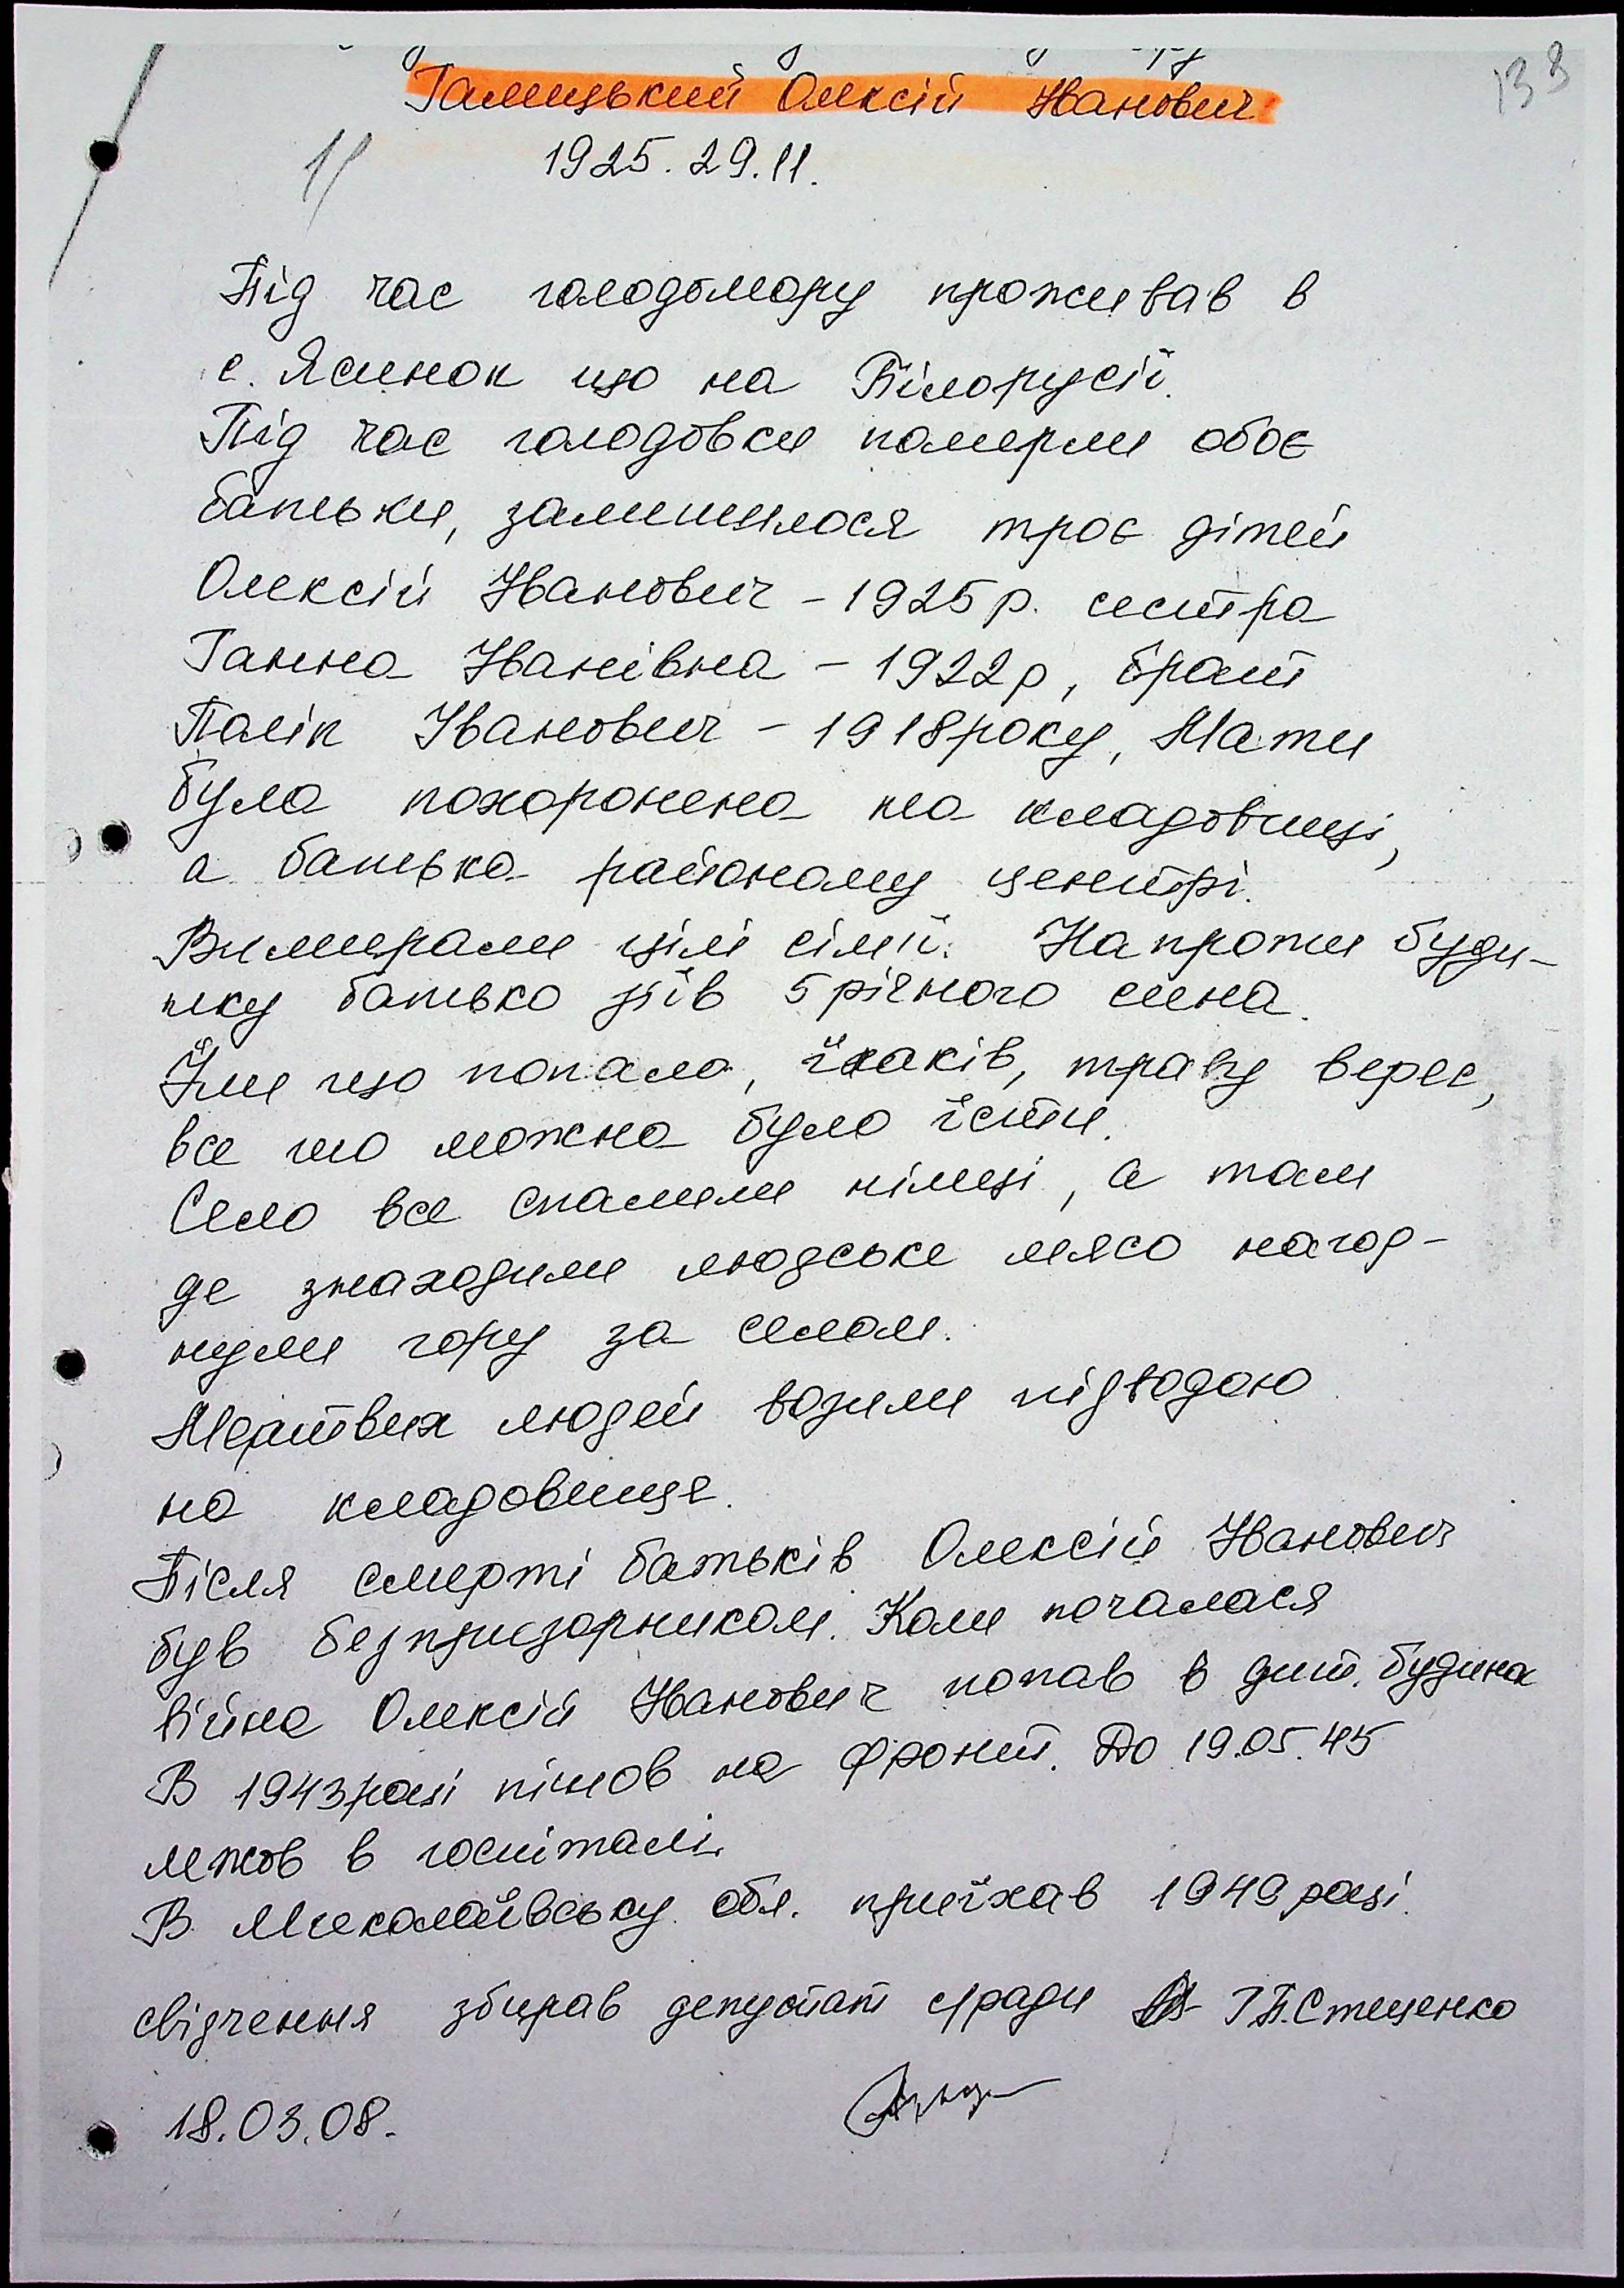 Галицький Олексій Іванович
1925. 29.11.
Під час голодомору проживав в
с. Ясинок що на Білорусії.
Під час голодовки померли обоє
батьки, залишилося троє дітей
Олексій Іванович - 1925р. сестра
Ганна Іванівна - 1922р, брат
Паліп Іванович - 1918року, Мати
була похоронена на кладовищі,
а батько районому центрі.
Вимирали цілі сімї. Напроти буди-
нку батько зїв 5 річного сина.
Їли що попало, їжаків, траву верес,
все шо можна було їсти.
Село все спалили німці, а там
де знаходили людське мясо нагор-
нули гору за селом.
Мертвих людей возили підводою
на кладовище.
Після смерті батьків Олексій Іванович
був безпризорником. Коли почалася
війна Олексій Іванович попав в дит. будинок
В 1943році пішов на фронт. До 19.05.45
лежав в госпіталі.
В Миколаївську обл. приїхав 1949році.
свідчення збирав депутат с/ради Г.П.Стеценко
18.03.08.